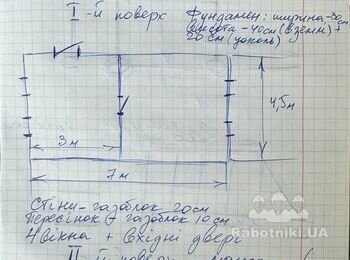 I-й поверх
Фундамен: ширина-30см
Висота - 40см (в землі) +
20 см (цоколь)
4,5м
3 м
7 м
Стіни - газоблок 20см
газоблок 10см
4 вікна + вхідні двері
II-й поверх
Rabotniki.UA